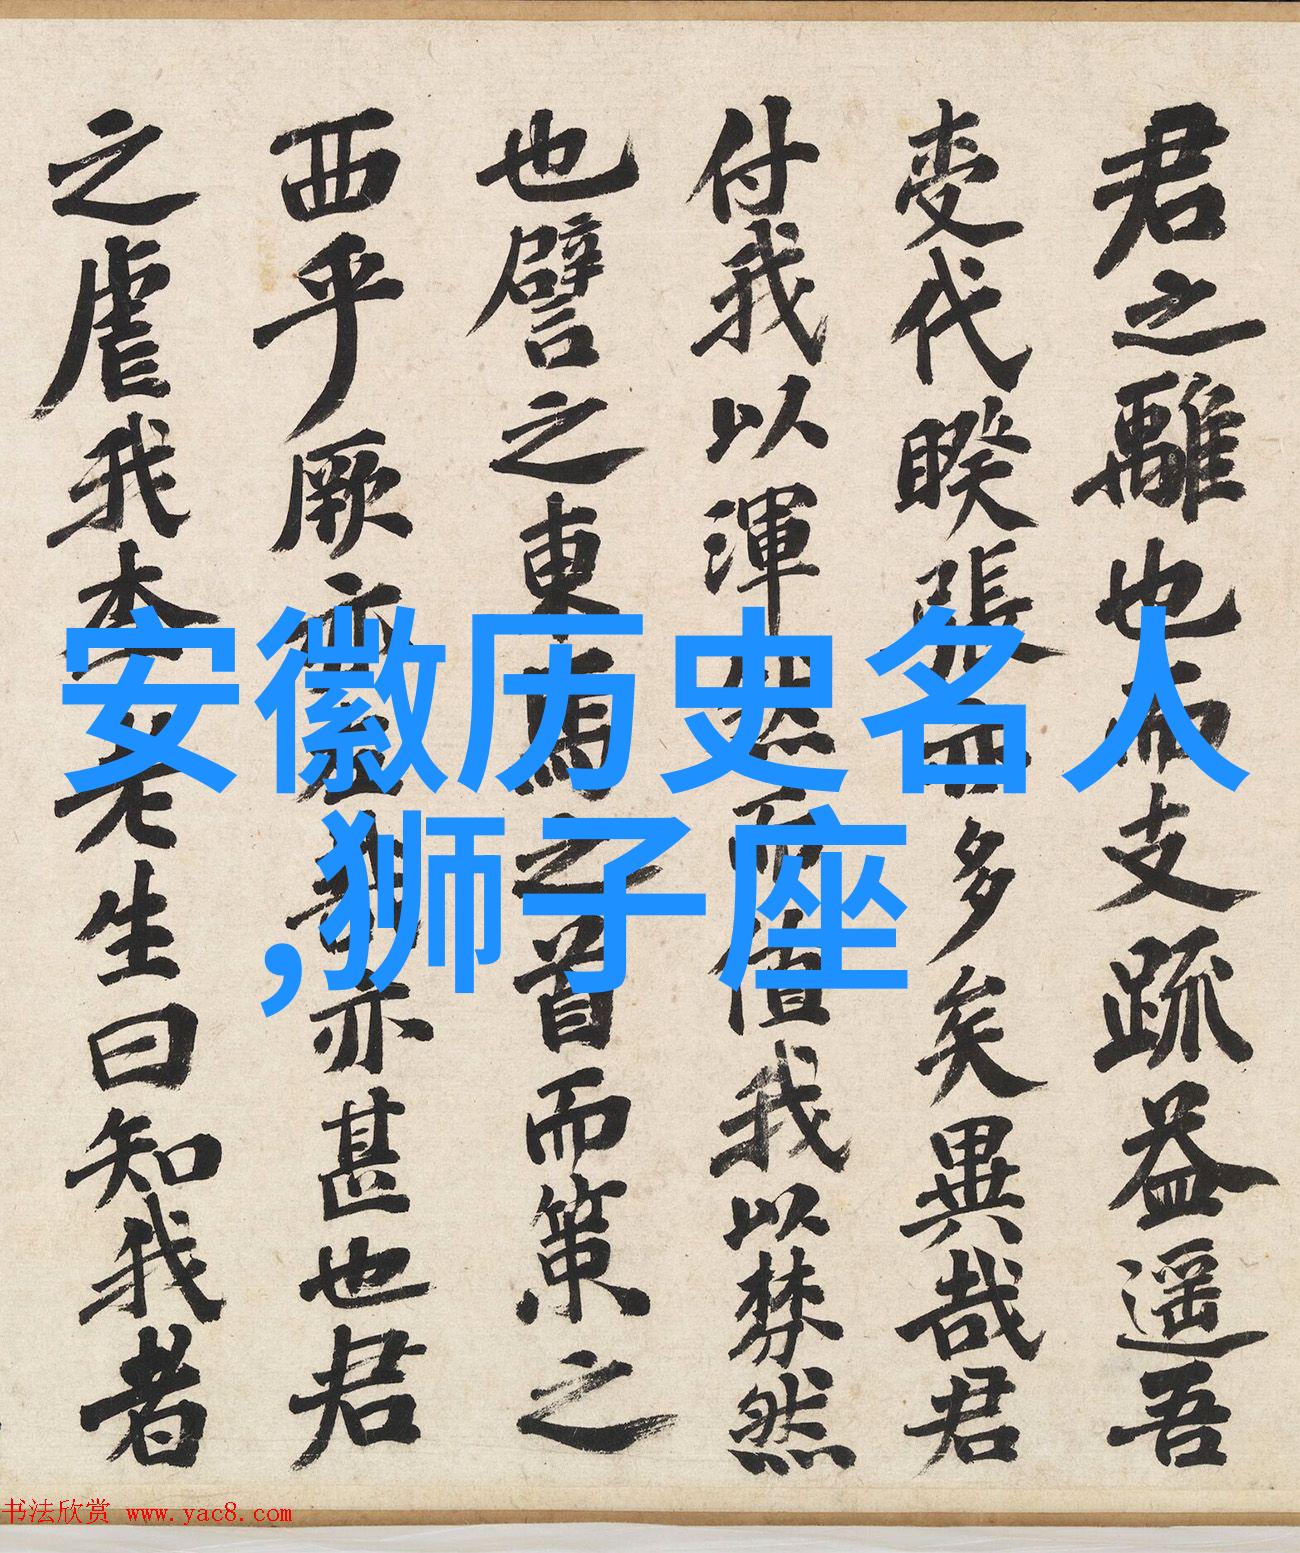 君之離也而支疏益遥吾
代睽張多矣異哉君
付我以渾然而值我以棼然
也譬之東馬之首而策之
西乎厥亦亦甚也君
之虐我本老生曰知我者
安徽历史名人
,狮子座
书法欣赏 www.yac8.com